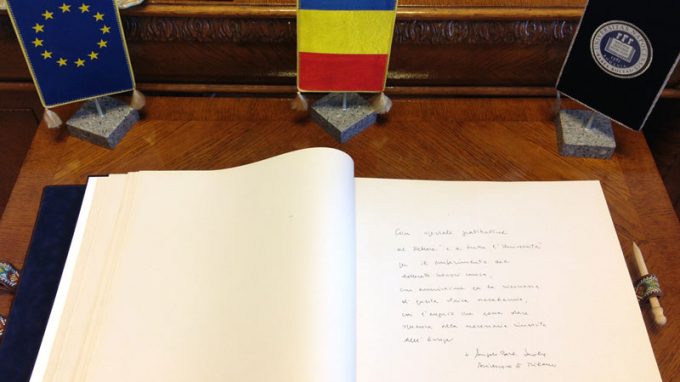 Con speciale gratitudine
al Rettore e a tutta l'Università
per il conferimento del
dottorato honoris causa,
con ammirazione per la
di questa
con l'augurio che possa dare
speranza alla necessaria rinascita
dell'Europa
+ Angelo Card. Scola
Arcivescovo di Milano